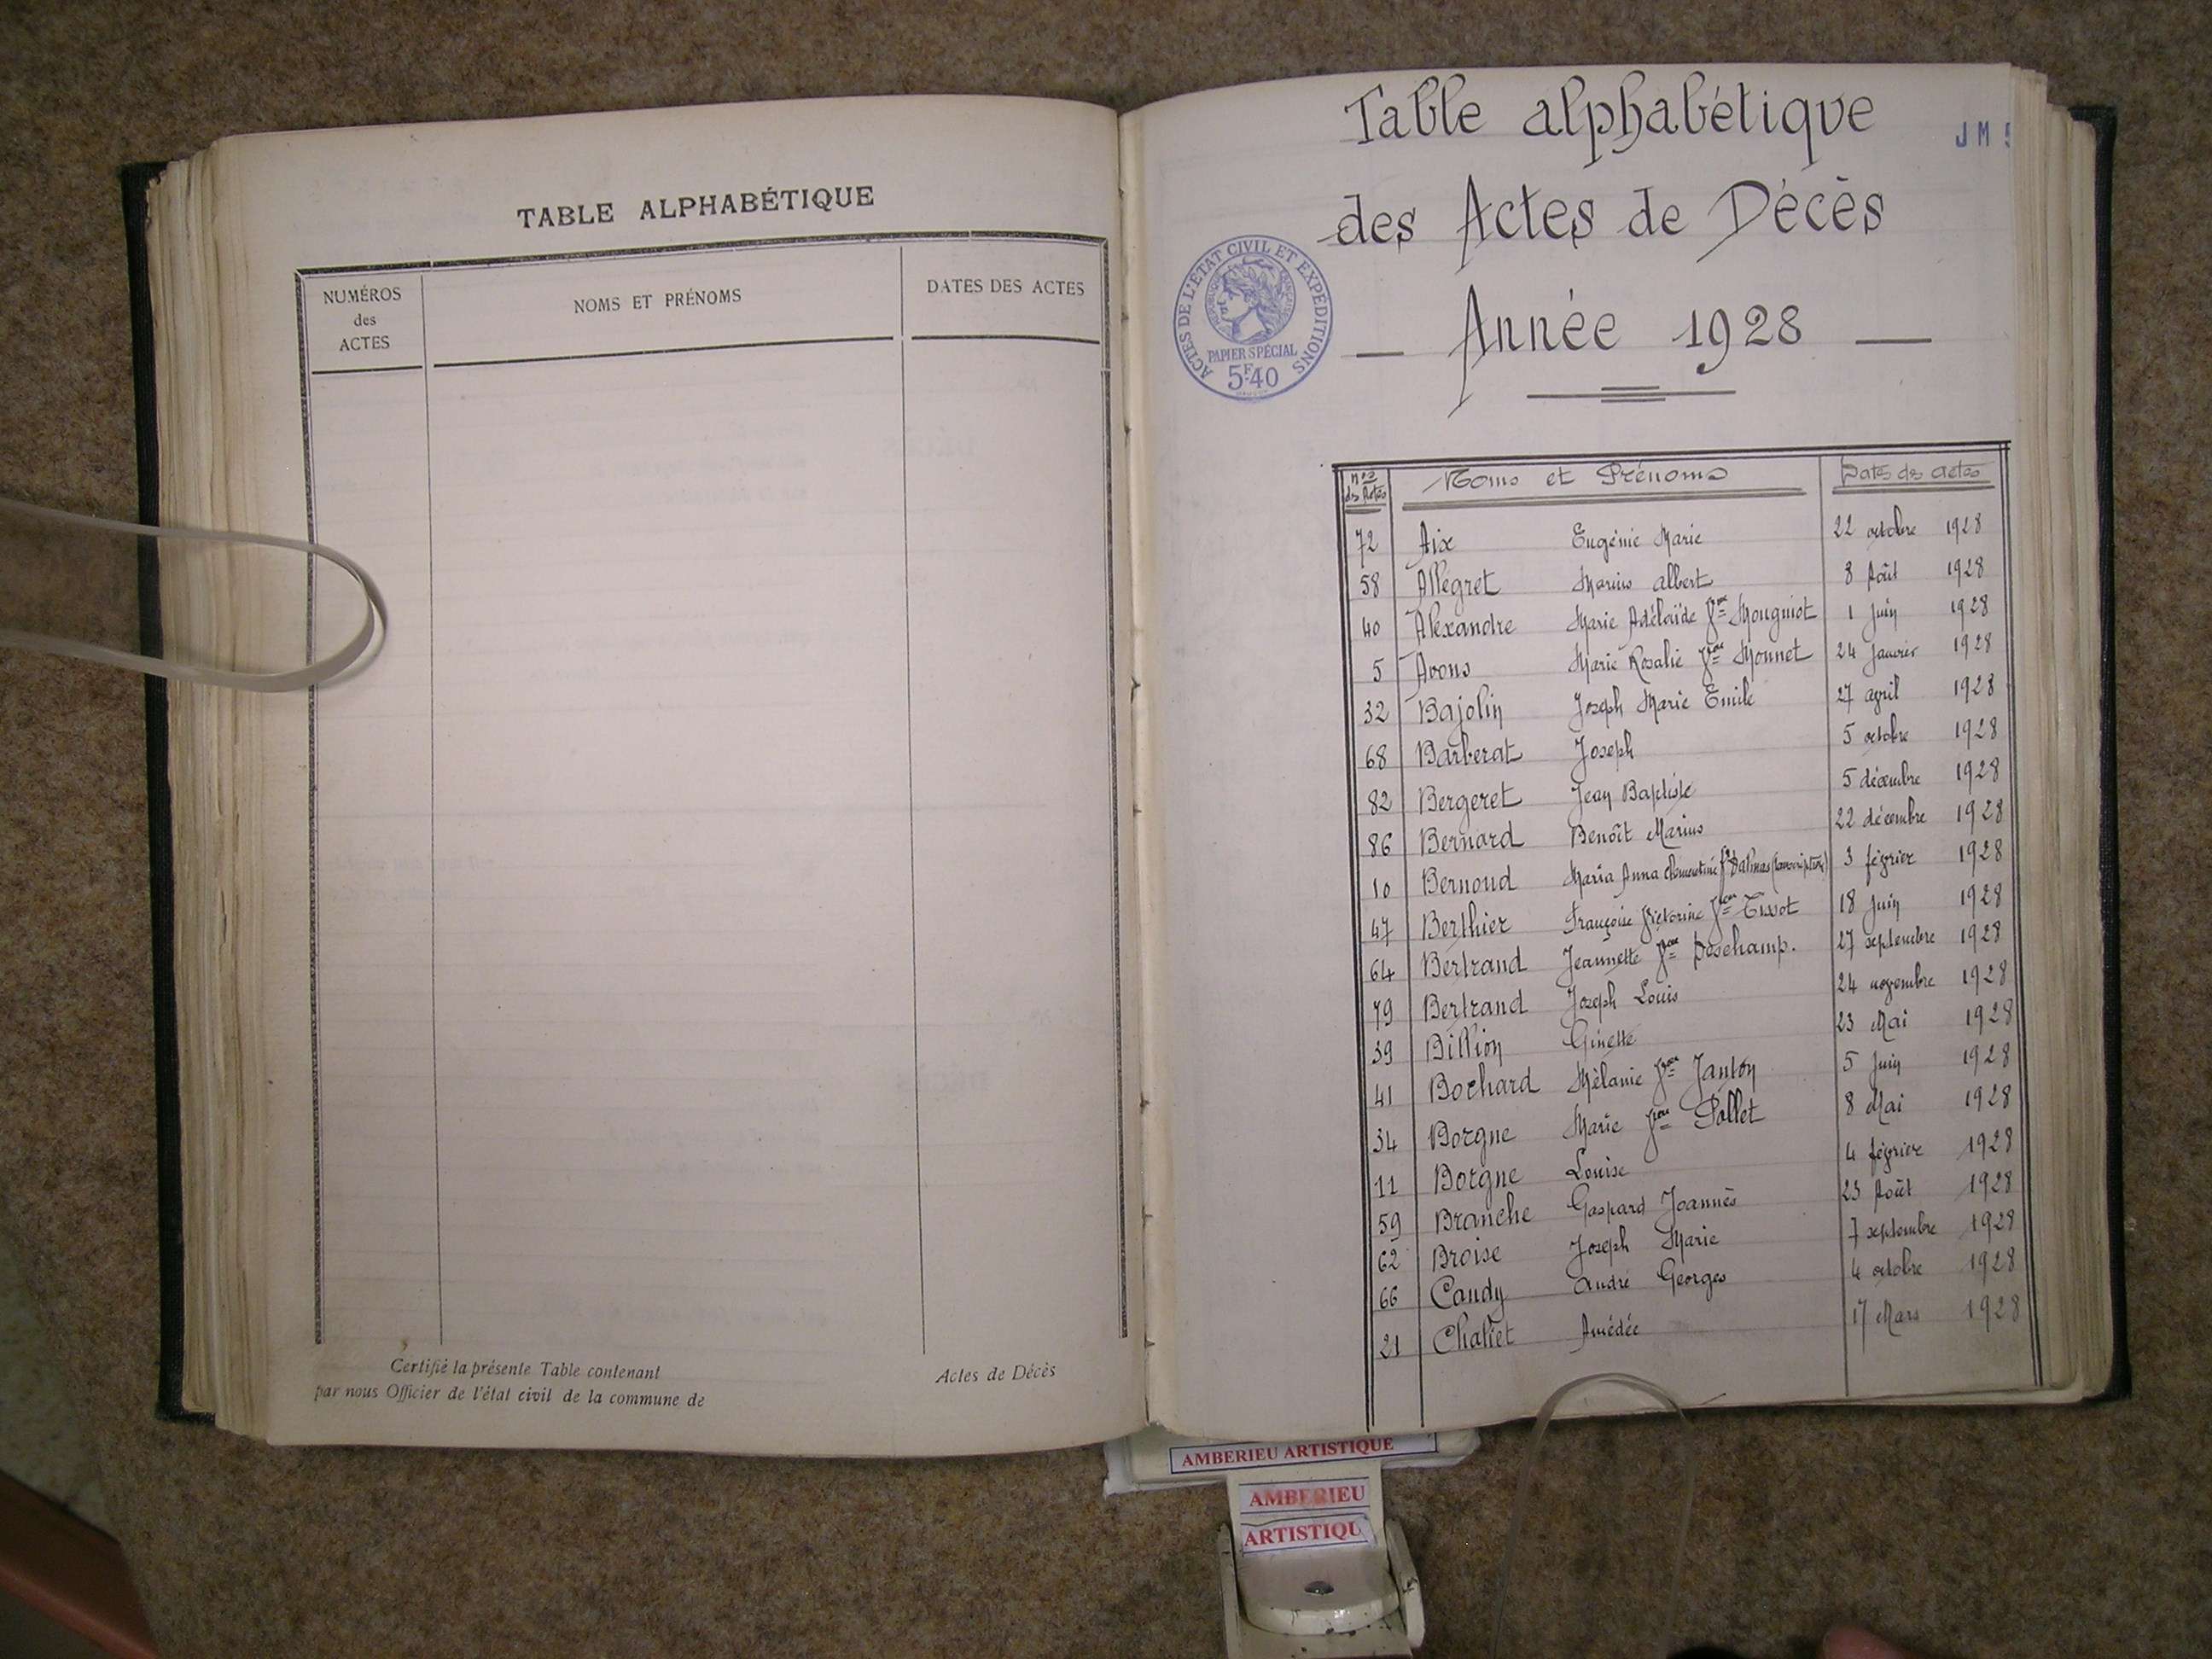 TABLE ALPHABÉTIQUE
NUMÉROS
des
ACTES
NOMS ET PRÉNOMS
DATES DES ACTES
Certifié la présente Table contenant
Actes de Décès
par nous Officier de l'état civil de la commune de
Table alphabétique
JM
des Actes de Décès
Année 1928
ACTES DE L'ÉTAT CIVIL ET EXPÉDITIONS
RÉPUBLIQUE FRANÇAISE
PAPIER SPÉCIAL
5F40
Nos des Actes Noms et Prénoms Dates des actes
72 Aix Eugénie Marie 22 octobre 1928
58 Allegret Marius Albert 8 Août 1928
40 Alexandre Marie Adélaïde fme Mougniot 1 Juin 1928
5 Avons Marie Rosalie fme Monnet 24 Janvier 1928
32 Bajolin Joseph Marie Emile 27 avril 1928
68 Barberat Joseph 5 octobre 1928
82 Bergeret Jean Baptiste 5 décembre 1928
86 Bernard Benoît Marius 22 décembre 1928
10 Bernoud Maria Anna Clémentine fe Dalmas (transcription) 3 février 1928
47 Berthier Françoise Victorine fme Tissot 18 Juin 1928
64 Bertrand Jeannette fme Deschamp. 27 septembre 1928
79 Bertrand Joseph Louis 24 novembre 1928
39 Billion Ginette 23 Mai 1928
41 Bochard Mélanie fme Janton 5 Juin 1928
34 Borgne Marie fme Pollet 8 Mai 1928
11 Borgne Louise 4 février 1928
59 Branche Gaspard Joannès 23 Août 1928
62 Broise Joseph Marie 7 septembre 1928
66 Candy André Georges 4 octobre 1928
21 Chaliet Amédée 17 Mars 1928
AMBERIEU ARTISTIQUE
AMBERIEU
ARTISTIQU